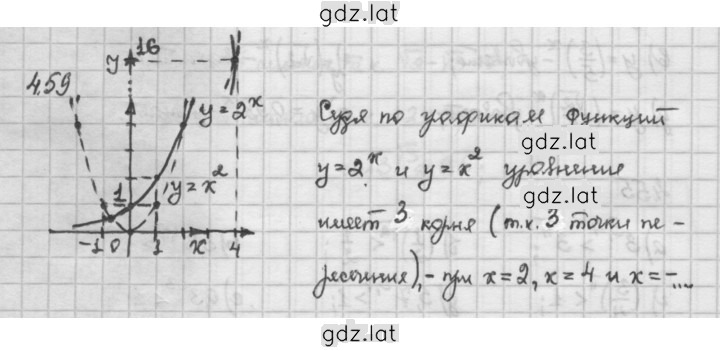 gdz.lat
16
y
4.59
y=2^x
Судя по графикам функций
gdz.lat
gdz.lat
1
y=x^2
y=2^x и y=x^2 уравнение
gdz.lat
имеет 3 корня (т.к. 3 точки пе-
-1 0 1 x 4
ресечения),- при x=2, x=4 и x=-...
gdz.lat